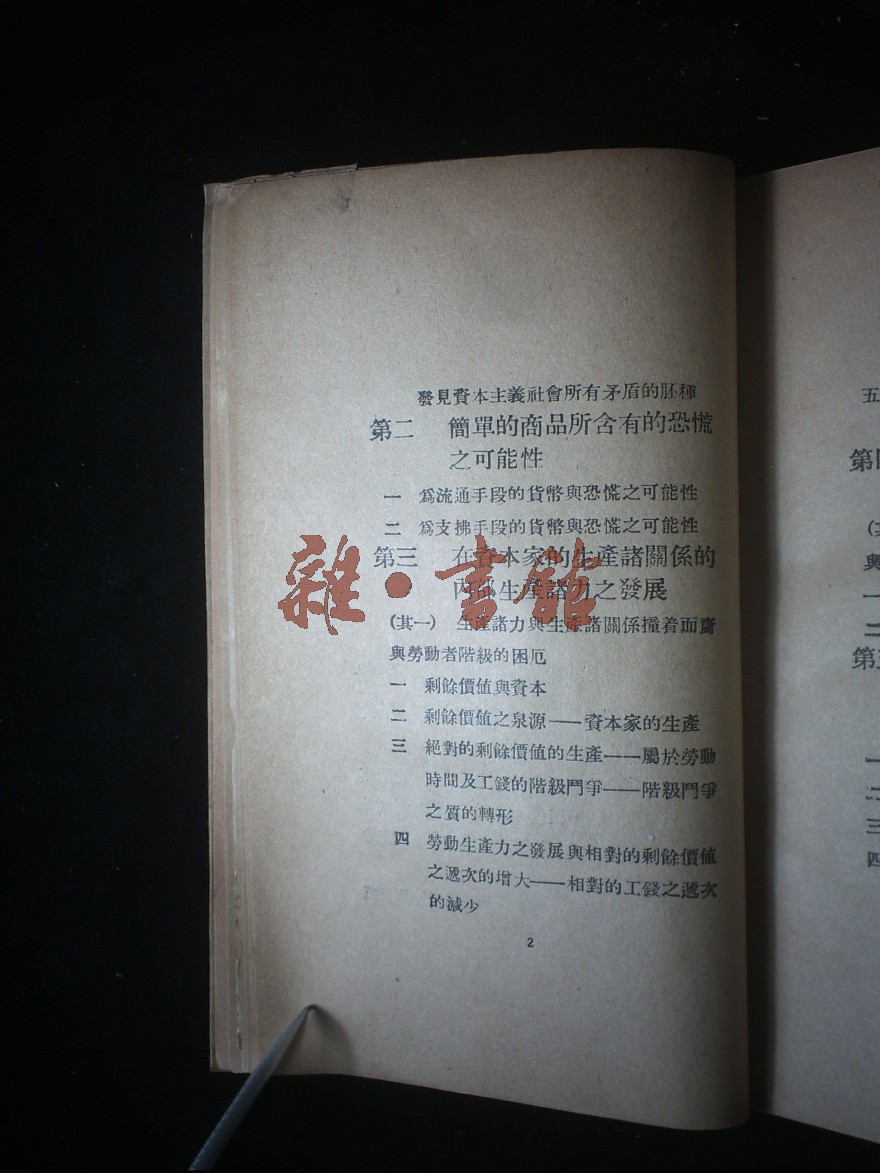 發見資本主義社會所有矛盾的胚種
第二 簡單的商品所含有的恐慌
之可能性
一 爲流通手段的貨幣與恐慌之可能性
二 爲支拂手段的貨幣與恐慌之可能性
第三 在資本家的生產諸關係的
內部生產諸力之發展
(其一) 生產諸力與生產諸關係撞着而齎
與勞動者階級的困厄
一 剩餘價值與資本
二 剩餘價值之泉源——資本家的生產
三 絕對的剩餘價值的生產——屬於勞動
時間及工錢的階級鬥爭——階級鬥爭
之質的轉形
四 勞動生產力之發展與相對的剩餘價値
之遞次的增大——相對的工錢之遞次
的減少
2
雜·書館
五
第
(其
與
一
二
第五
一
二
三
四